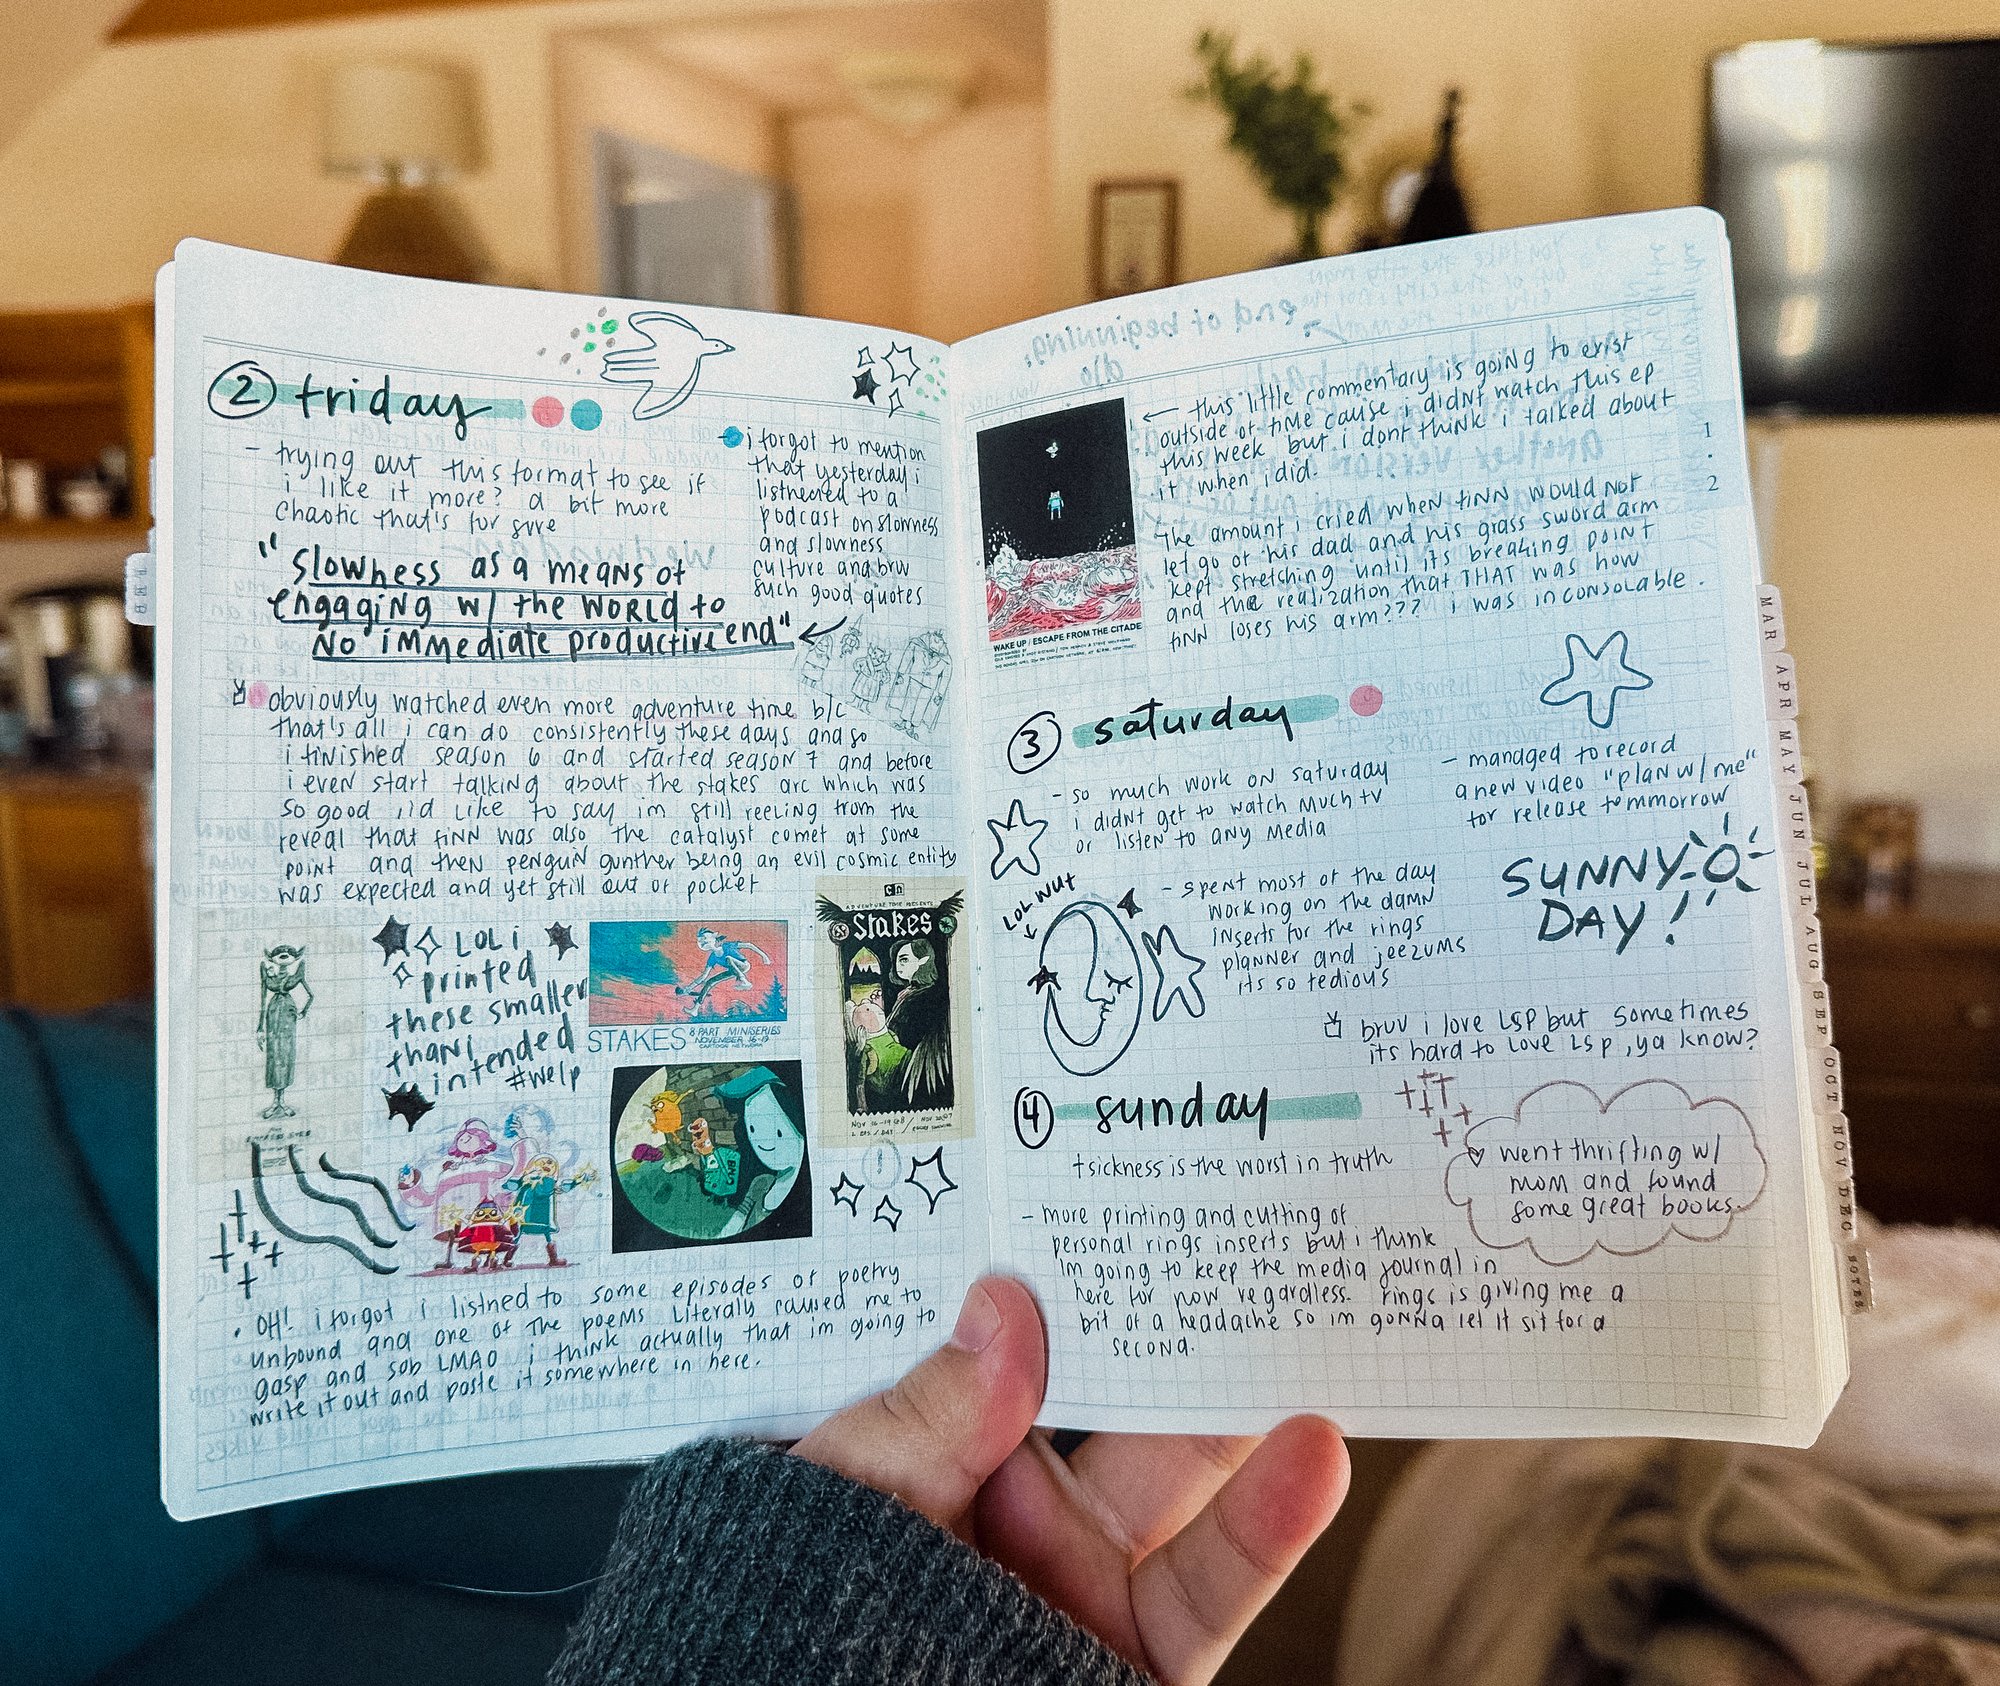 2 friday
- trying out this format to see if
i like it more? a bit more
chaotic that's for sure
i forgot to mention
that yesterday i
listnened to a
podcast on slowness
and slowness
culture and bruv
such good quotes
"Slowness as a means of
engaging w/ the world to
no immediate productive end"
obviously watched even more adventure time b/c
that's all i can do consistently these days and so
i finished season 6 and started season 7 and before
i even start talking about the stakes arc which was
so good, i'd like to say im still reeling from the
reveal that finn was also the catalyst comet at some
point and then penguin gunther being an evil cosmic entity
was expected and yet still out of pocket
LOL i
printed
these smaller
than i
intended
#welp
STAKES 8 PART MINISERIES
NOVEMBER 16-19
CARTOON NETWORK
CN
ADVENTURE TIME PRESENTS
Stakes
BMO
· OH! i forgot i listned to some episodes of poetry
unbound and one of the poems literally caused me to
gasp and sob LMAO i think actually that im going to
write it out and paste it somewhere in here.
FEB
WAKE UP / ESCAPE FROM THE CITADE
← this little commentary is going to exist
outside of time cause i didnt watch this ep
this week but i dont think i talked about
it when i did.
The amount i cried when finn would not
let go of his dad and his grass sword arm
kept stretching until its breaking point
and the realization that THAT was how
finn loses his arm??? i was inconsolable.
1
·
2
3 saturday
- so much work on saturday
i didnt get to watch much tv
or listen to any media
- managed to record
a new video "plan w/ me"
for release tommorrow
SUNNY
DAY!
LOL WUT
- spent most of the day
working on the damn
inserts for the rings
planner and jeezums
its so tedious
bruv i love LSP but sometimes
its hard to love lsp, ya know?
4 sunday
+ sickness is the worst in truth
went thrifting w/
mom and found
some great books.
- more printing and cutting of
personal rings inserts but i think
im going to keep the media journal in
here for now regardless. rings is giving me a
bit of a headache so im gonna let it sit for a
second.
MAR
APR
MAY
JUN
JUL
AUG
SEP
OCT
NOV
DEC
NOTES